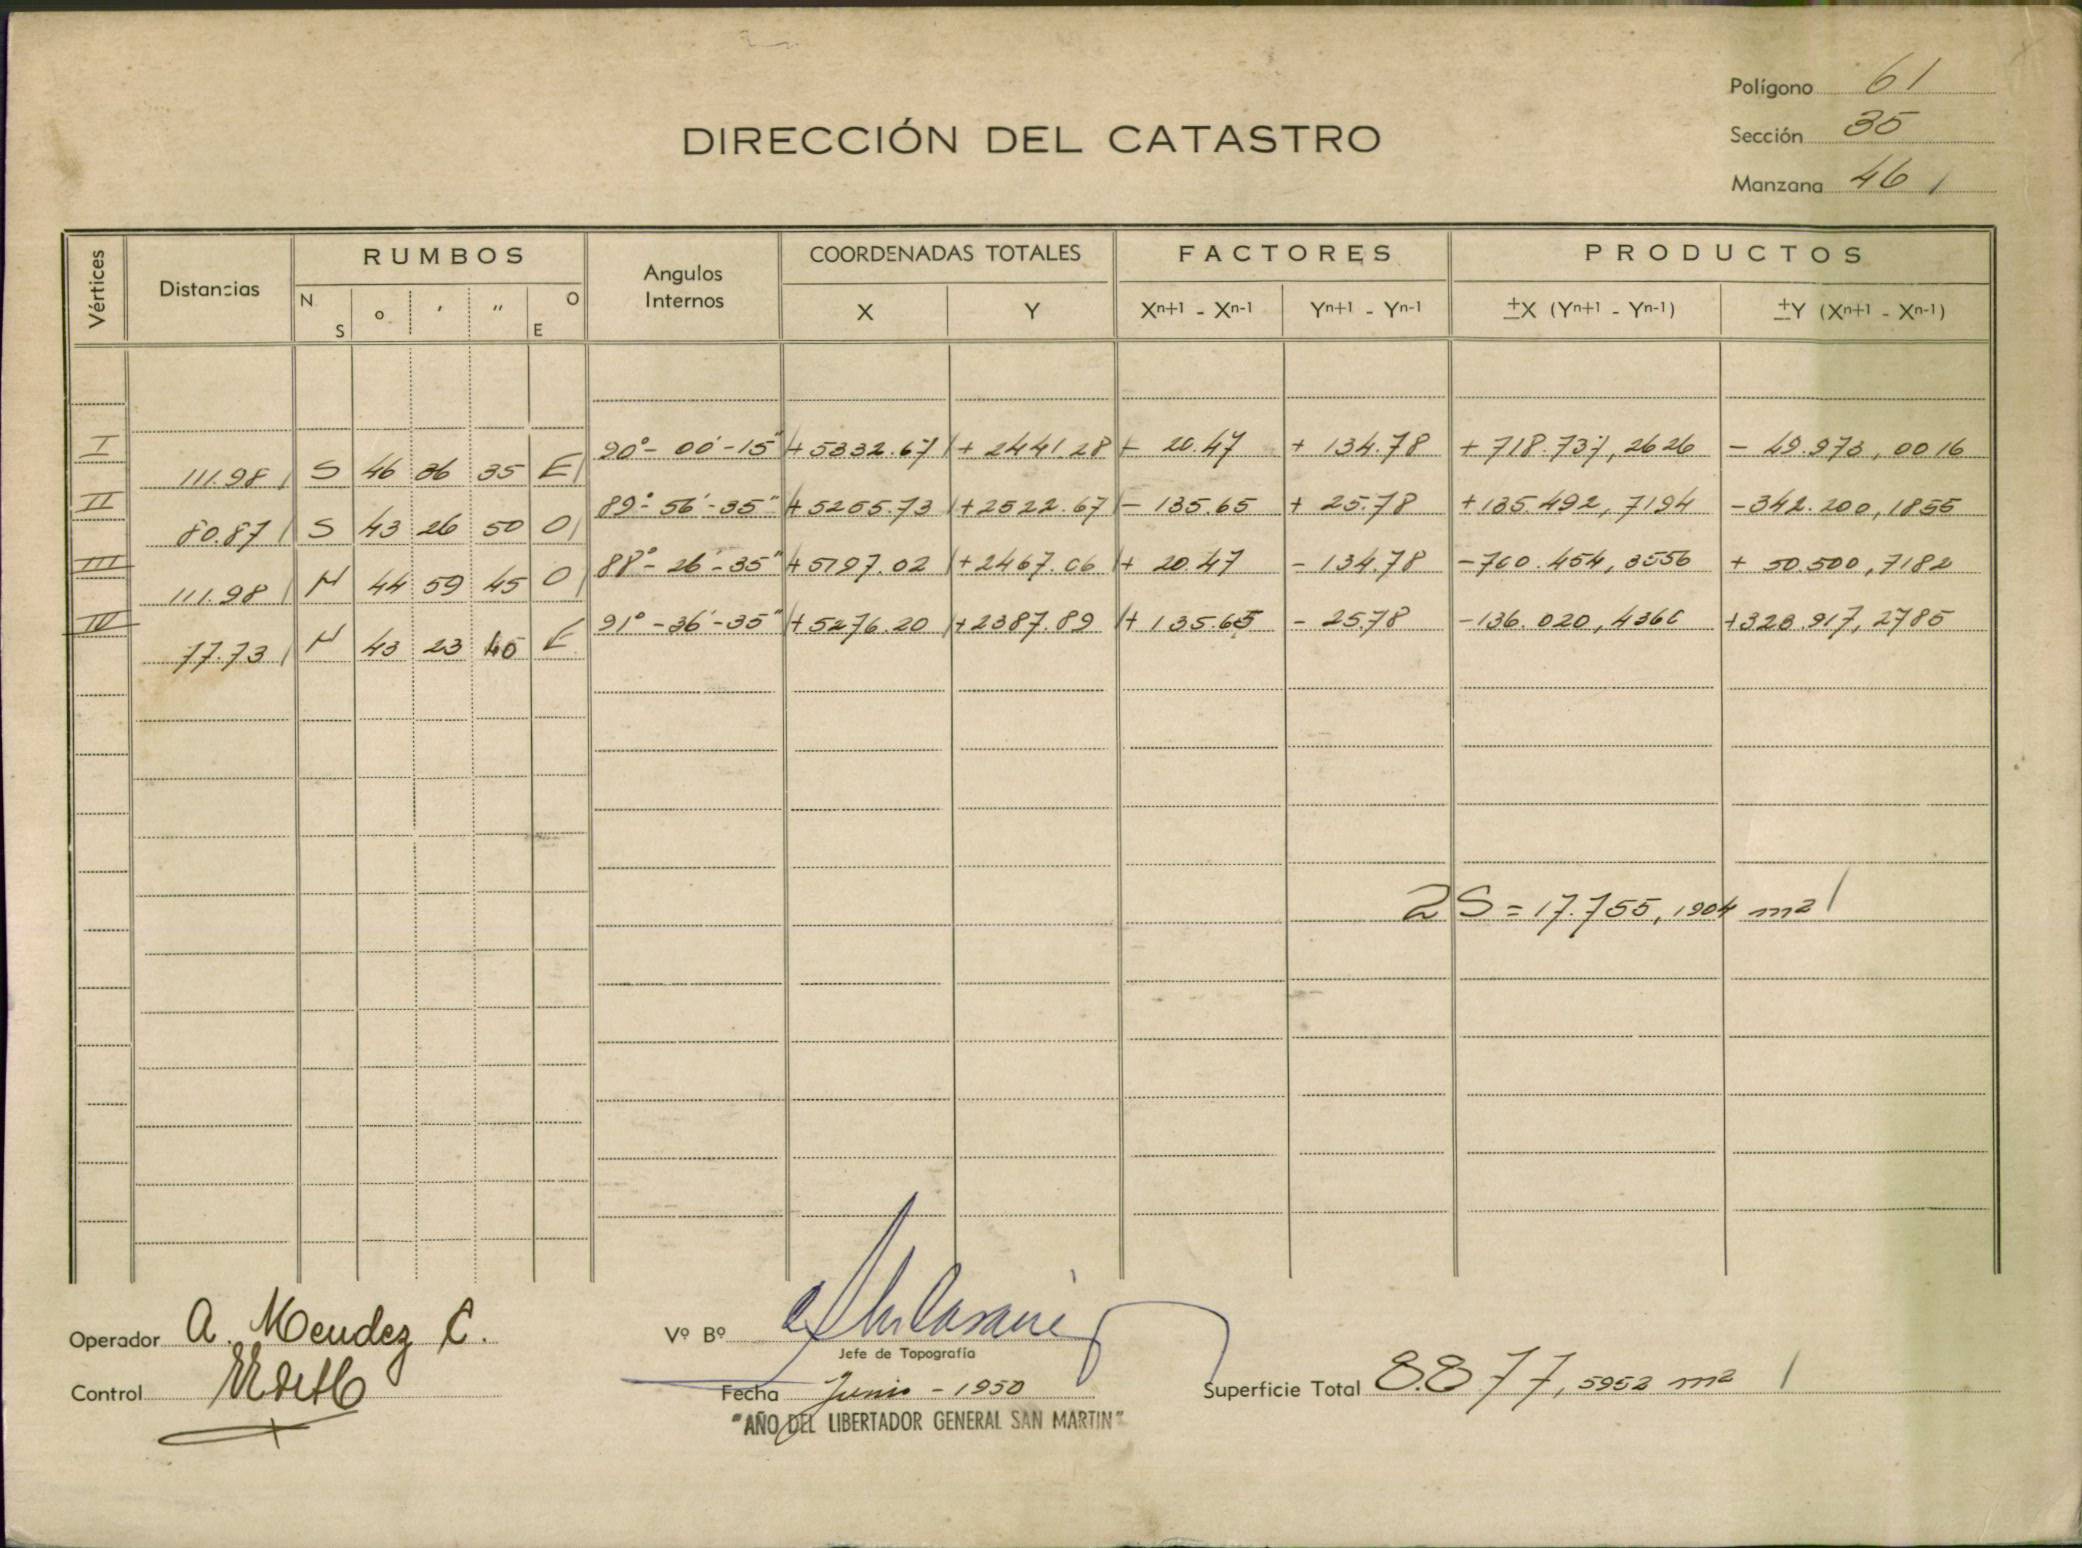 Polígono 61
DIRECCIÓN DEL CATASTRO
Sección 35
Manzana 46
Vértices Distancias RUMBOS Angulos Internos COORDENADAS TOTALES FACTORES PRODUCTOS
N S ° ' " O E X Y Xn+1 - Xn-1 Yn+1 - Yn-1 ±X (Yn+1 - Yn-1) ±Y (Xn+1 - Xn-1)
I 90° - 00' - 15" +5332.67 +2441.28 - 20.47 + 134.78 +718.737,2626 - 49.973,0016
111.98 S 46 36 35 E
II 89° - 56' - 35" +5255.73 +2522.67 - 135.65 + 25.78 +135.492,7194 -342.200,1855
80.87 S 43 26 50 O
III 88° - 26' - 35" +5197.02 +2467.06 + 20.47 - 134.78 -700.454,3556 + 50.500,7182
111.98 N 44 59 45 O
IV 91° - 36' - 35" +5276.20 +2387.89 + 135.65 - 25.78 -136.020,4360 +323.917,2785
77.73 N 43 23 40 E
2S = 17.755,1904 m2
Operador A. Mendez C.
Vº Bº
Jefe de Topografía
Control
Fecha Junio - 1950
Superficie Total 8.877,5952 m2
"AÑO DEL LIBERTADOR GENERAL SAN MARTIN"